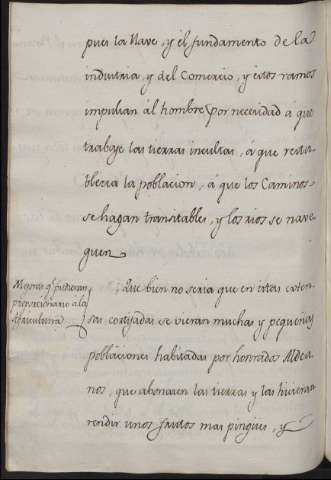 pues la llave, y él fundamento de la
industria, y del Comercio, y éstos ramos
impulsan ál hombre por necesidad á que
trabaje las tierras incultas, á que resta-
bleciera la poblacion, á que los Caminos
se hagan transitables, y los rios se nave-
guen.
Mejoras q.e
a la
Agricultura
¡Que bien no seria que en éstas exten-
sas cortijadas se vieran muchas y pequeñas
poblaciones habitadas por honrados Aldea-
nos, que abonasen las tierras y las hicieran
rendir unos frutos mas pingües, y